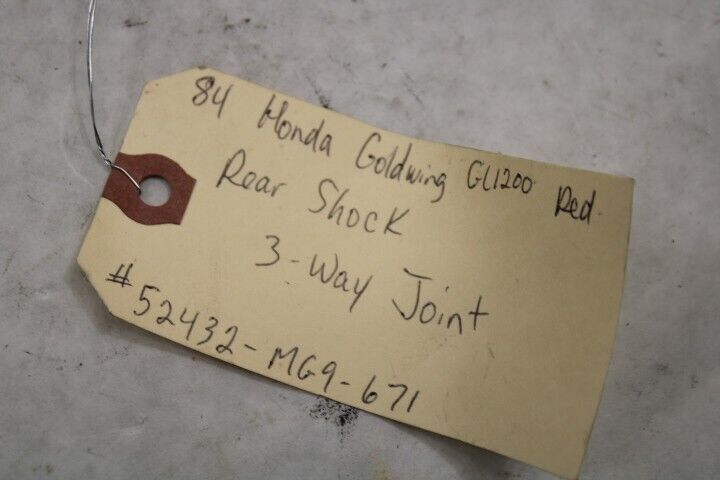 84 Honda Goldwing GL1200 Red
Rear Shock
3-Way Joint
#52432-MG9-671